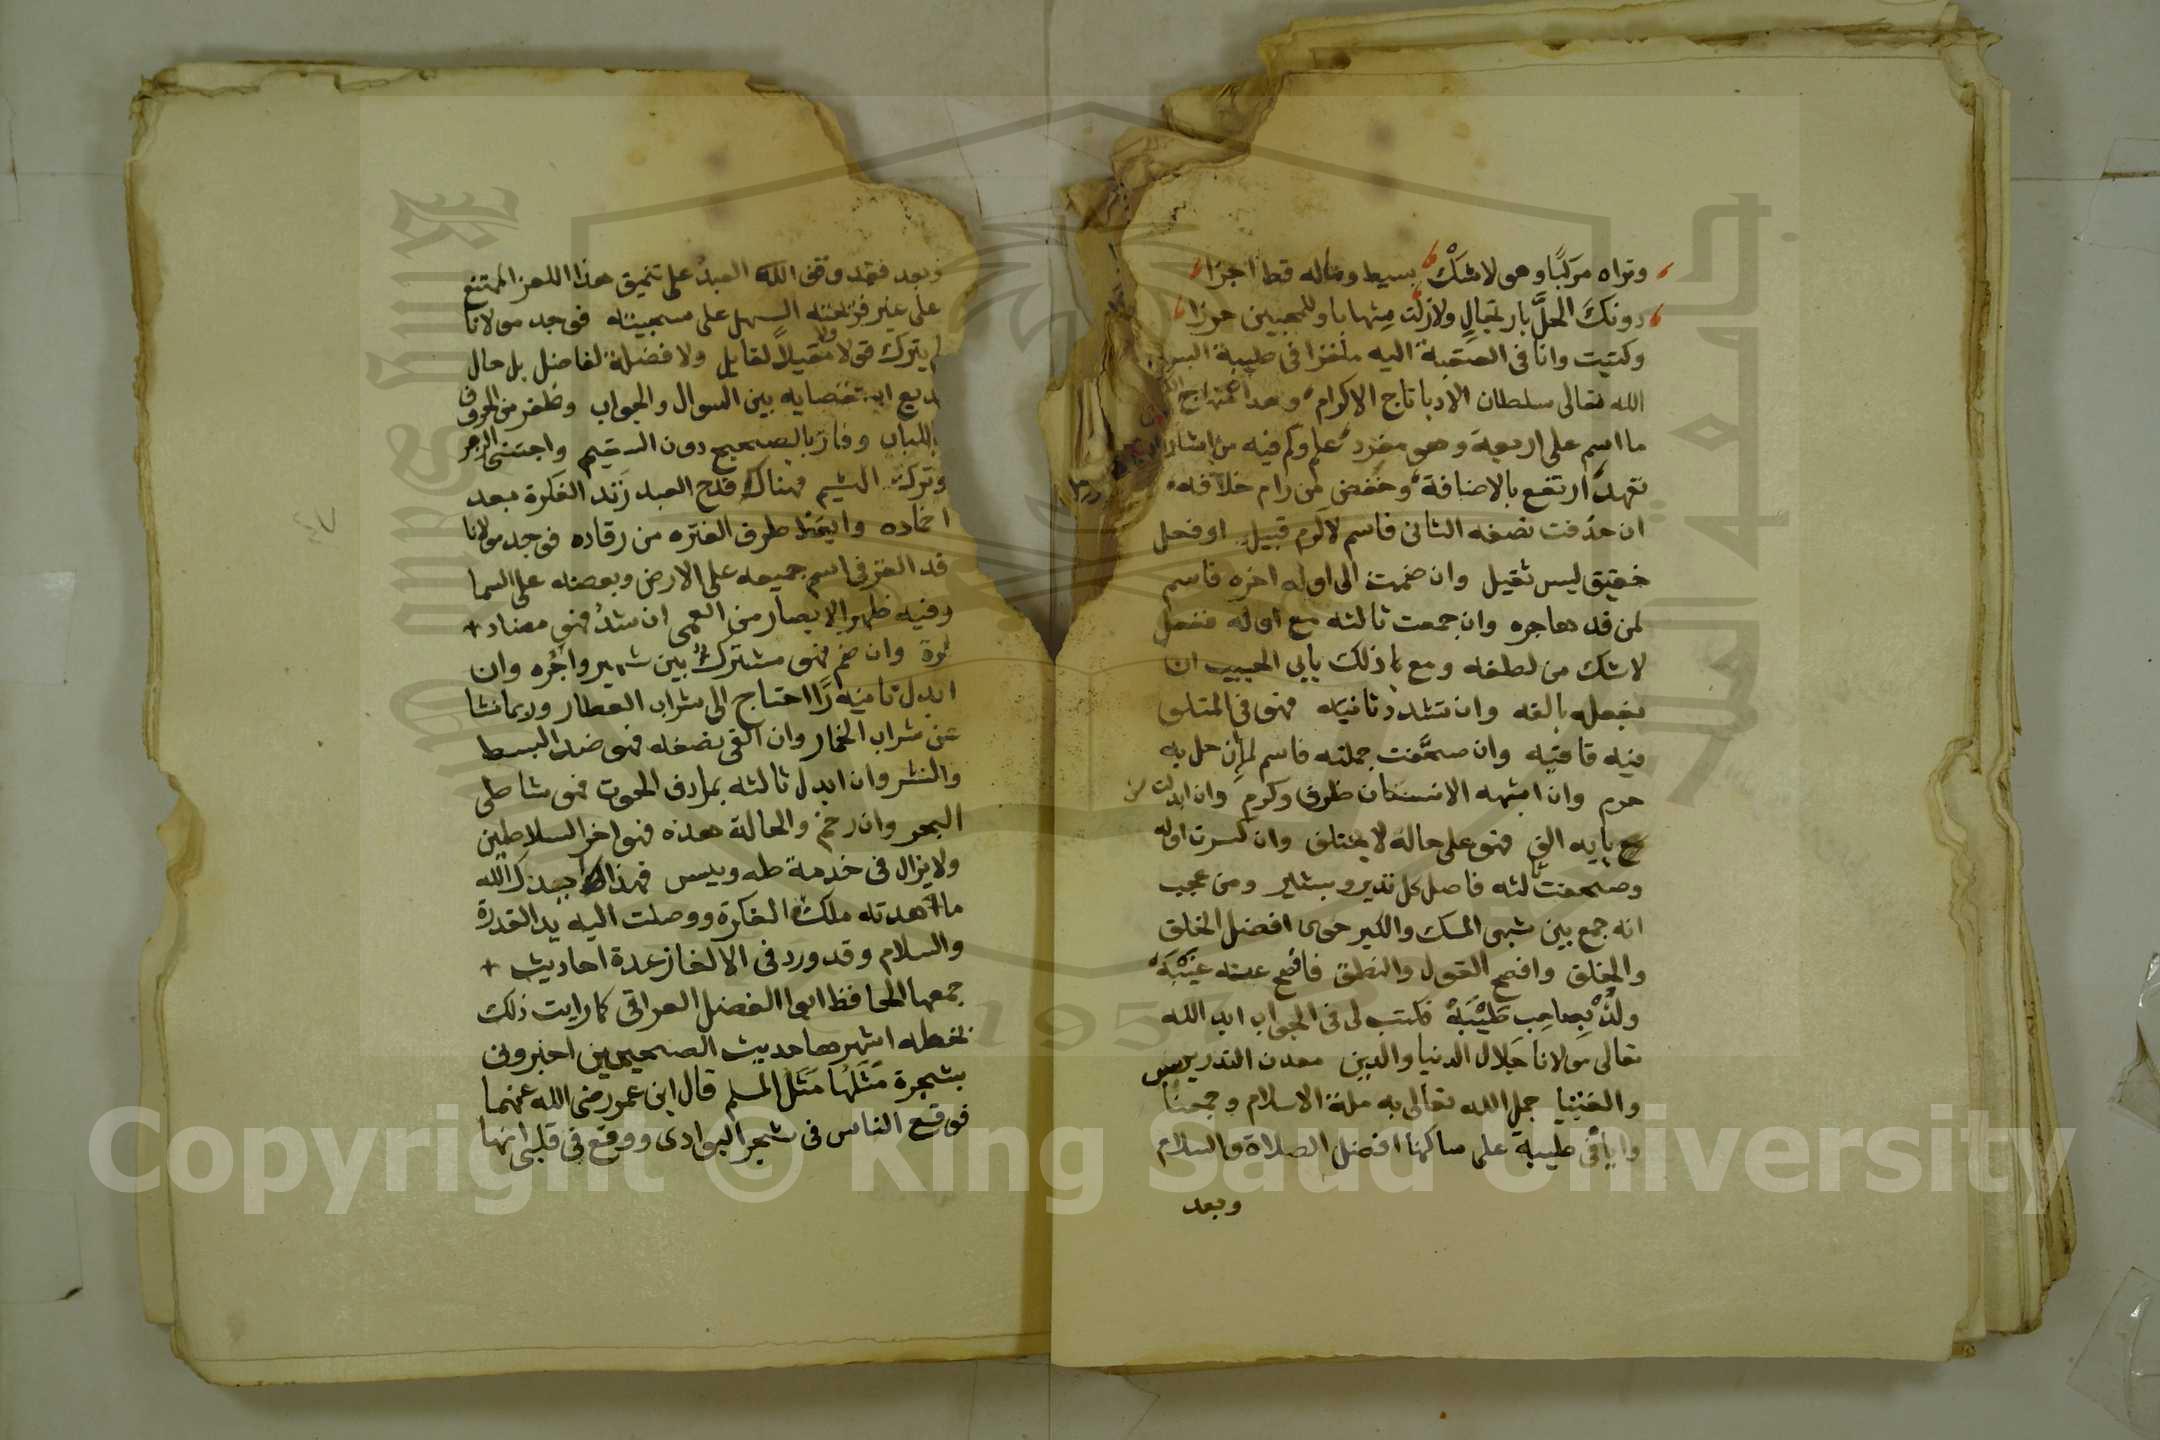 وتراه مركبا وهو لاشك بسيط وماله قط اجزا
دونك الحل بارتجال ولازلت شهابا وللمحبين حرزا
وكتبت وانا في العقبة اليه ملغزا في طيبة
الله تعالى سلطان الادبا تاج الاكرام
ما اسم على اربعة وهو مفرد علم وكم فيه من
تعهد ارتفع بالاضافة وخفض لمن رام خلافه
ان حذفت نصفه الثاني فاسم لاكرم قبيل او فعل
خفيف ليس ثقيل وان ضممت الى اوله اخره فاسم
لمن قد هاجره وان جمعت ثالثه مع اوله ففعل
لاشك من لطفه ومع ذلك يابى الحبيب ان
يفعله بالفه وان تشدد ثانيه فهو في المتلو
فيه قافيه وان صحفت جملته فاسم لمن حل به
حرم وان اشبهه الانسان ظرف وكرم وان ابدلت من
يايه الف فهو على حاله لا يختلف وان كسرت اوله
وصحفت ثالثه فاصل كل نذير وبشير ومن عجب
انه جمع بين شبهى المسك والكير حوى افضل الخلق
والخلق وافصح القول والنطق فافصح عنه غيبة
ولذ بصاحب طيبة فكتب لي في الجواب ايد الله
تعالى مولانا جلال الدنيا والدين معدن التدريس
والفتيا جمل الله تعالى به ملة الاسلام وجمعنا
واياه في طيبة على ساكنها افضل الصلاة والسلام
وبعد
وبعد فقد وفق الله العبد على تنميق هذا اللغز الممتنع
على غير قريحته السهل على سجيته فوجد مولانا
لم يترك قولا ولا مقيلا لقايل ولا فضلة لفاضل بل حال
بين السوال والجواب وظفر من الحروف
باللباب وفاز بالصحيح دون السقيم واجتنى الزهر
وترك الهشيم فهناك قدح العبد زند الفكرة بعد
اخماده وايقظ طرف الفتره من رقاده فوجد مولانا
قد الغز في اسم جميعه على الارض وبعضه على السما
وفيه ظهر الابصار من العمى ان شد فهو مضاد
وان ضم فهو مشترك بين شهير واجره وان
ابدل ثانيه را احتاج الى شراب العطار ولربما نشا
عن شراب الخمار وان القى نصفه فهو ضد البسط
والنشر وان ابدل ثالثه بمرادف الحوت فهو شاطى
البحر وان رخم والحالة هذه فهو اخر السلاطين
ولا يزال في خدمة طه ويس فهذا
ما اهدته ملكة الفكرة ووصلت اليه يد القدرة
والسلام وقد ورد في الالغاز عدة احاديث
جمعها الحافظ ابو الفضل العراقي كما رايت ذلك
بخطه اشهرها حديث الصحيحين اخبروني
بشجرة مثلها مثل المسلم قال ابن عمر رضي الله عنهما
فوقع الناس في شجر البوادي ووقع في قلبي انها
Copyright © King Saud University
1957